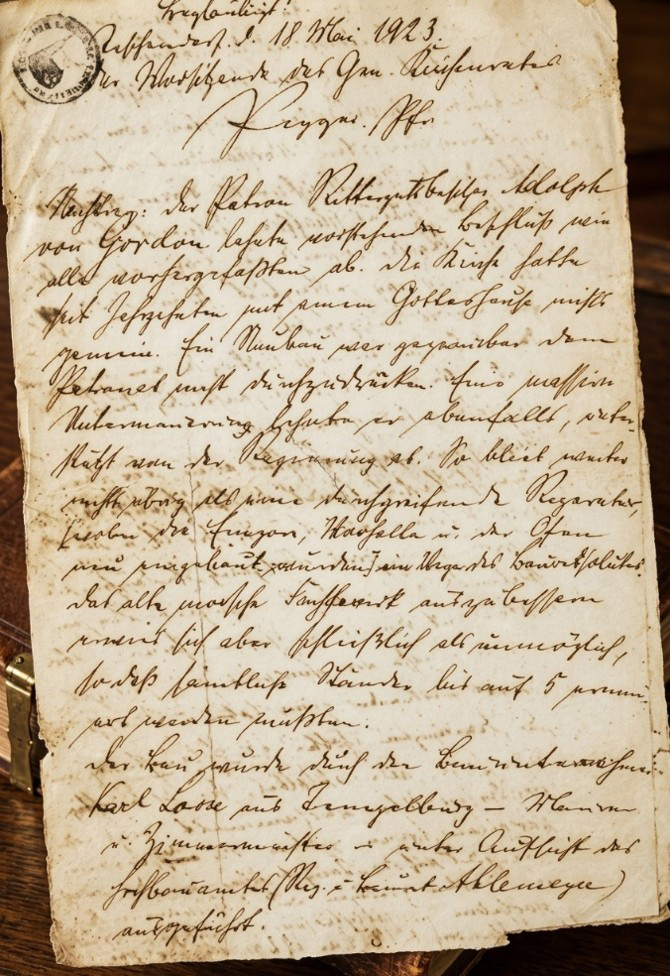 beglaubigt!
d. 18. Mai 1923.
Der Vorsitzende des Gem. Kirchenrates
Pfr
Nachtrag: der Patron Rittergutsbesitzer Adolph
von Gordon lehnte vorstehenden Beschluß wie
alle vorhergefaßten ab. die Kirche hatte
seit Jahrzehnten mit einem Gotteshause nichts
gemein. Ein Neubau war gegenüber dem
Patronat nicht durchzudrücken. Eine massive
Untermauerung lehnte er ebenfalls, unter-
stützt von der Regierung ab. So blieb weiter
nichts übrig als eine durchgreifende Reparatur,
[wobei die Empore, u. der Ofen
neu eingebaut wurden] im Wege des Bauresoluts.
das alte morsche Fachwerk auszubessern
erwies sich aber schließlich als unmöglich,
so daß sämtliche Ständer bis auf 5 erneu-
ert werden mußten.
der Bau wurde durch den Bauunternehmer
Karl Loose aus Tempelburg – Maurer
u. Zimmermeister – unter Aufsicht des
Hochbauamtes (Reg. u. Baurat Ahlemeyer)
ausgeführt.